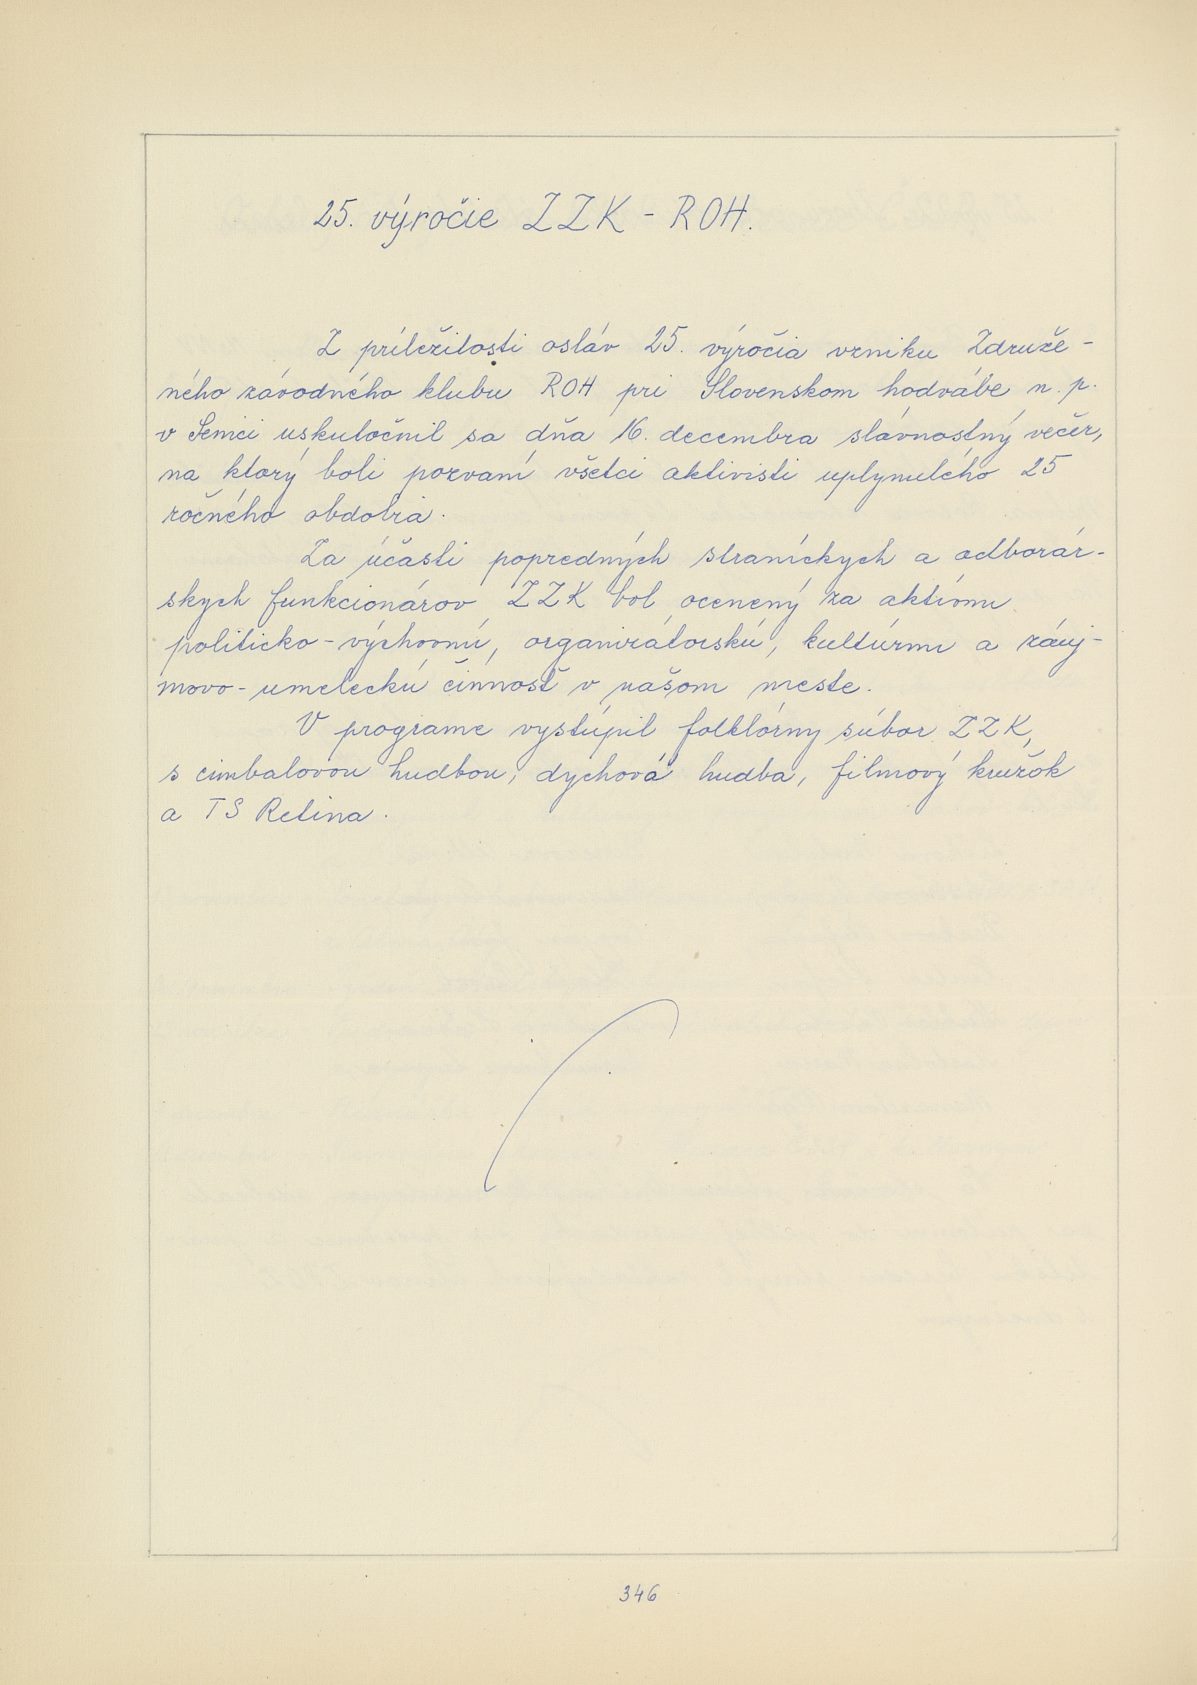 25. výročie ZZK - ROH.
Z príležitosti osláv 25. výročia vzniku Združe-
ného závodného klubu ROH pri Slovenskom hodvábe n. p.
v Senici uskutočnil sa dňa 16. decembra slávnostný večer,
na ktorý boli pozvaní všetci aktivisti uplynulého 25
ročného obdobia.
Za účasti popredných straníckych a odborár-
skych funkcionárov ZZK bol ocenený za aktívnu
politicko-výchovnú, organizátorskú, kultúrnu a záuj-
movo-umeleckú činnosť v našom meste.
V programe vystúpil folklórny súbor ZZK,
s cimbalovou hudbou, dychová hudba, filmový krúžok
a TS Retina.
346